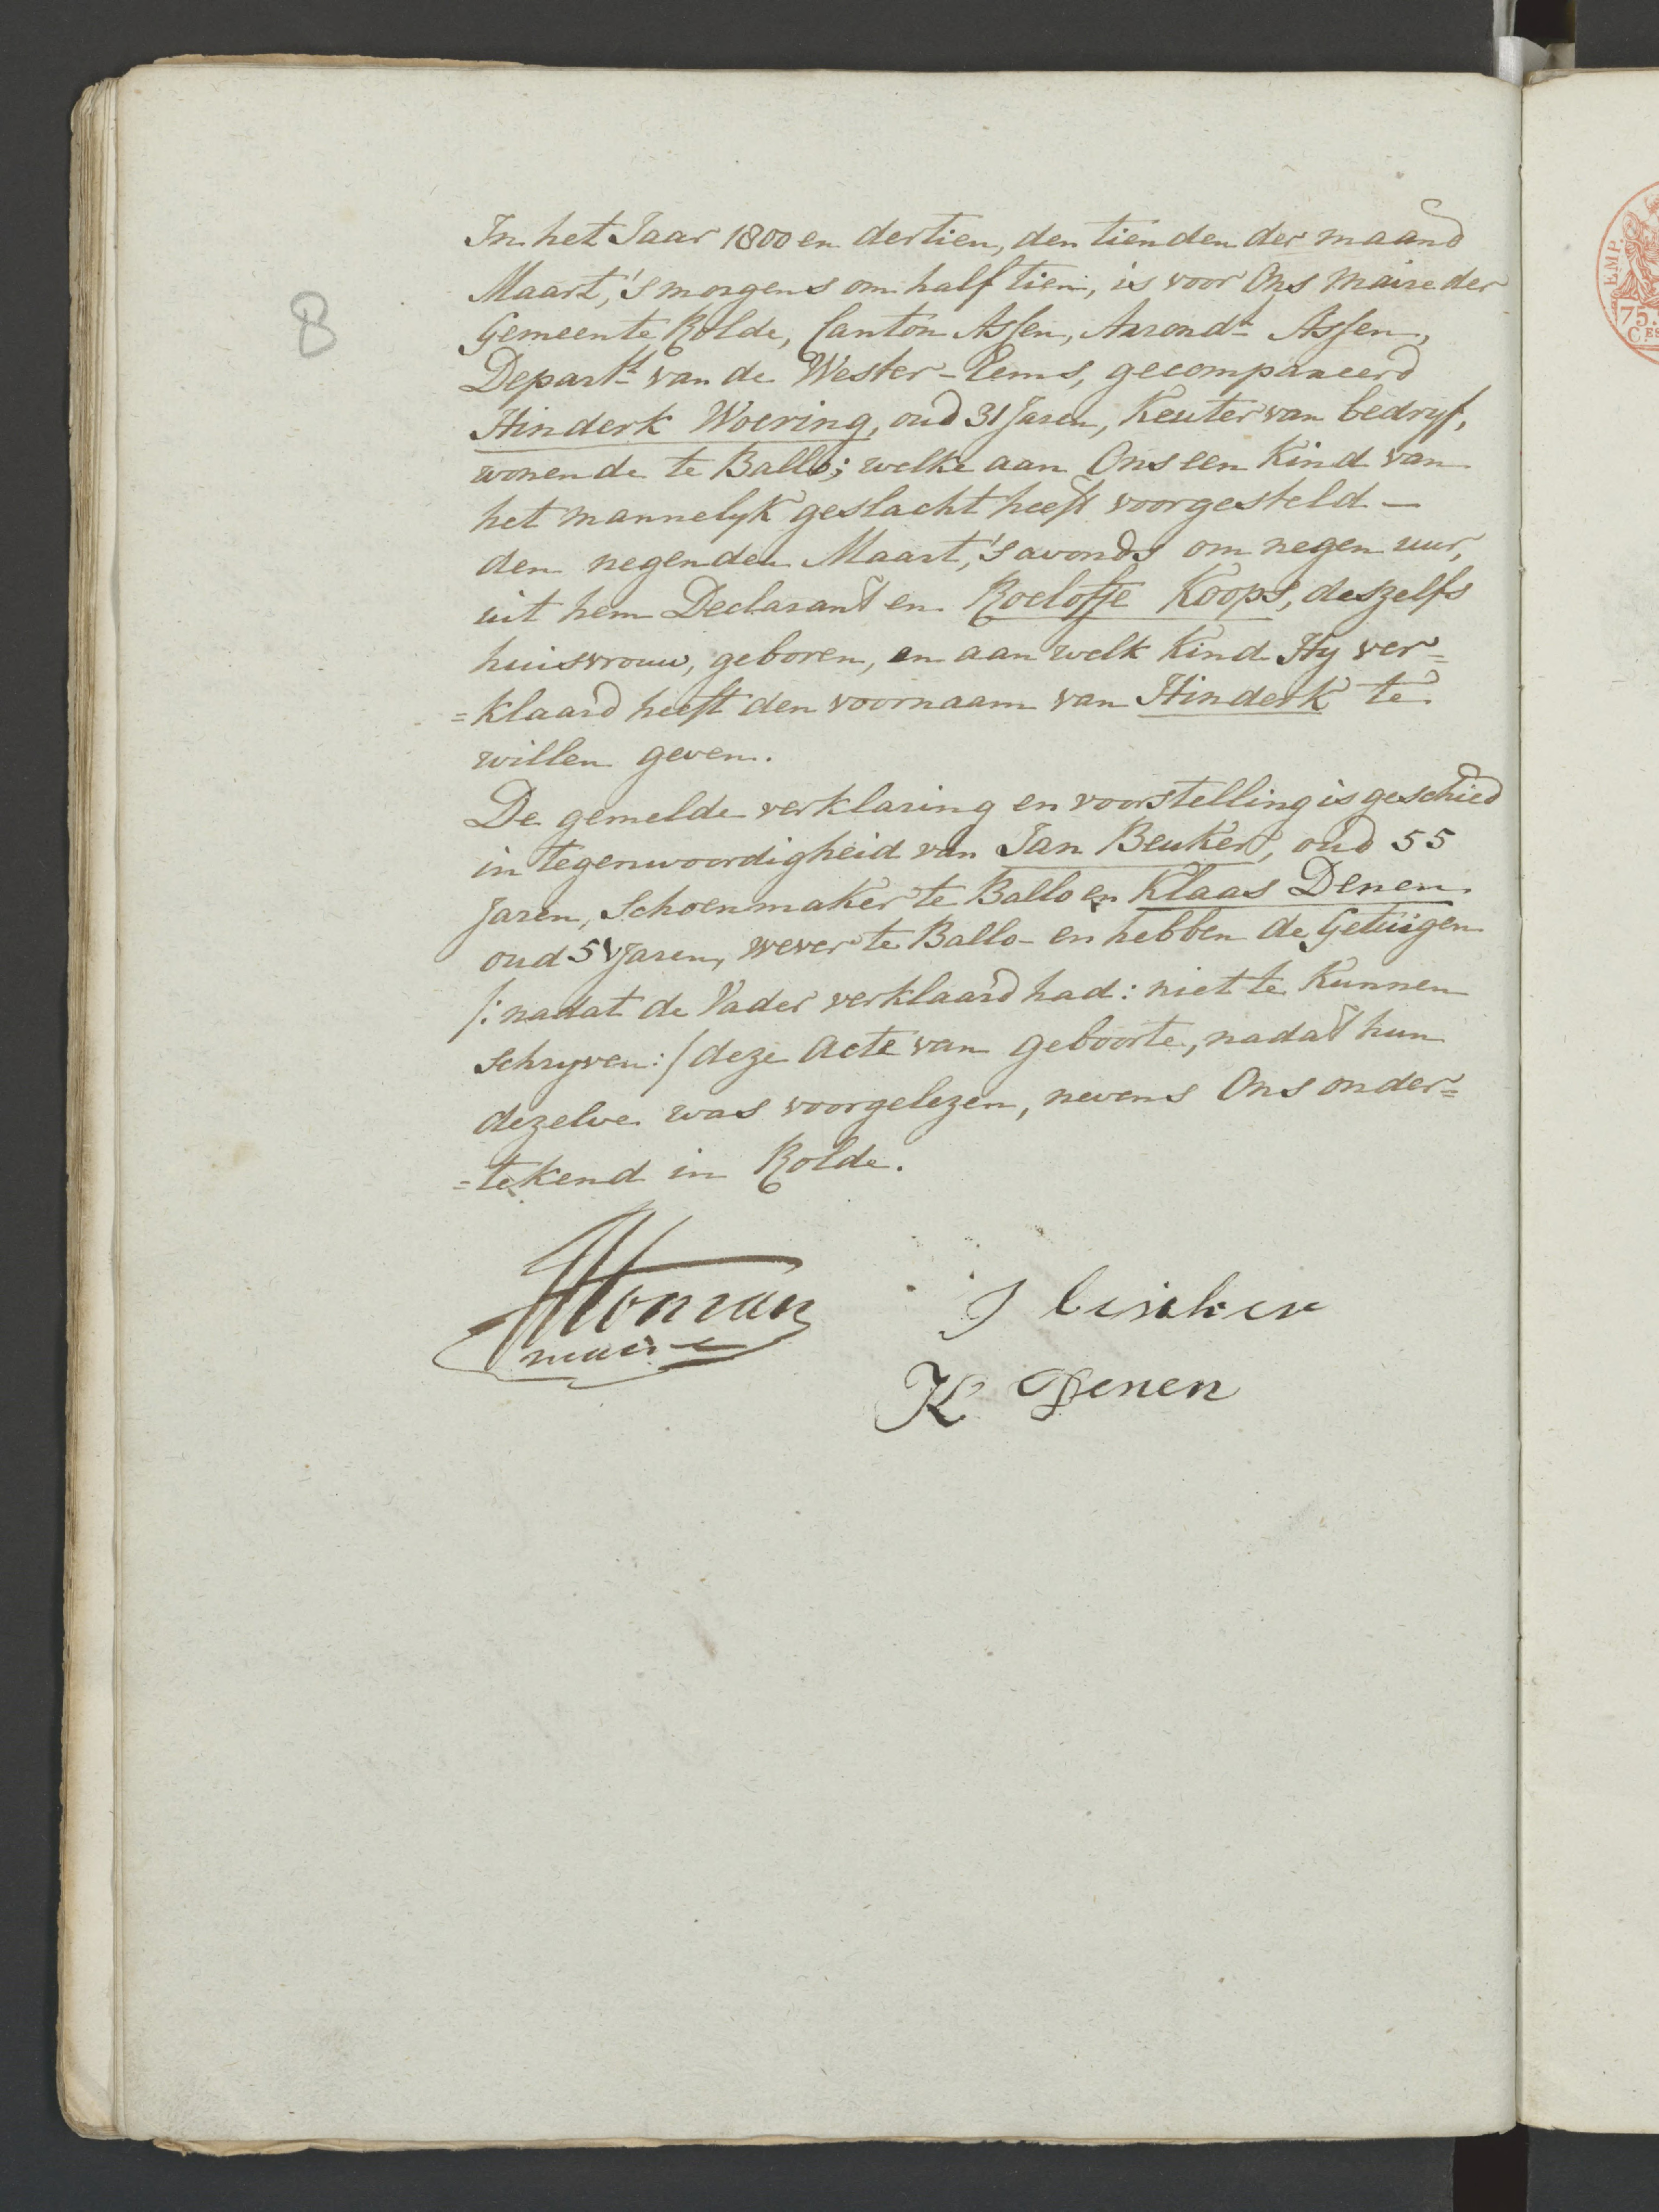 8
In het Jaar 1800 en dertien, den tienden der maand
Maart, 's morgens om half tien, is voor Ons Maire der
Gemeente Rolde, Canton Assen, Arrondt Assen,
Departt van de Wester-Eems, gecompareerd
Hinderk Woering, oud 31 Jaren, Keuter van bedryf,
wonende te Ballo; welke aan Ons een Kind van
het mannelyk geslacht heeft voorgesteld —
den negenden Maart, 's avonds om negen uur,
uit hem Declarant en Roelofje Koops, deszelfs
huisvrouw, geboren, en aan welk Kind Hy ver=
=klaard heeft den voornaam van Hinderk te
willen geven.
De gemelde verklaring en voorstelling is geschied
in tegenwoordigheid van Jan Beuker, oud 55
Jaren, Schoenmaker te Ballo en Klaas Denen
oud Jaren, wever te Ballo - en hebben de Getuigen
/: nadat de Vader verklaard had: niet te Kunnen
Schryven :/ deze Acte van geboorte, nadat hun
dezelve was voorgelezen, nevens Ons onder=
=tekend in Rolde.
Homan
maire
J beuker
K Denen
EMP.
75.
C.ES